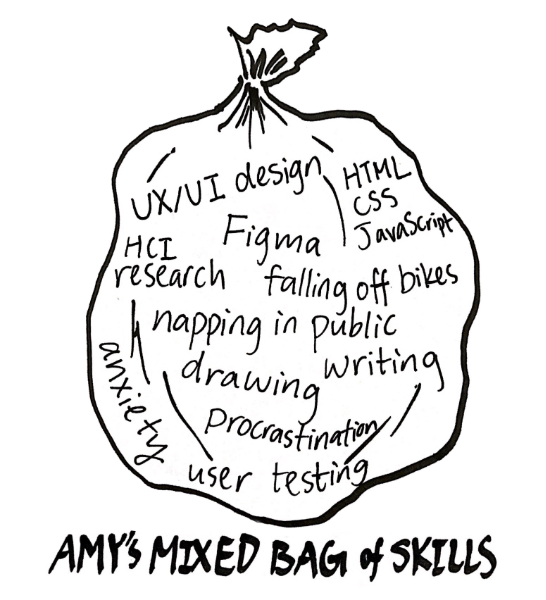 UX/UI design
HTML
CSS
JavaScript
HCI
research
Figma
falling off bikes
napping in public
anxiety
drawing
writing
procrastination
user testing
AMY's MIXED BAG of SKILLS